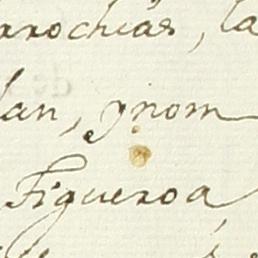 rrochias, la
lan, ynom
Figueroa